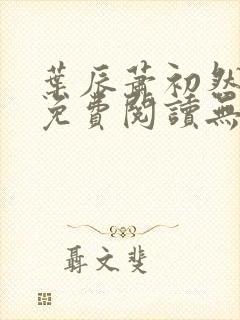 葉辰蕭初然
免費閱讀無
聶文斐